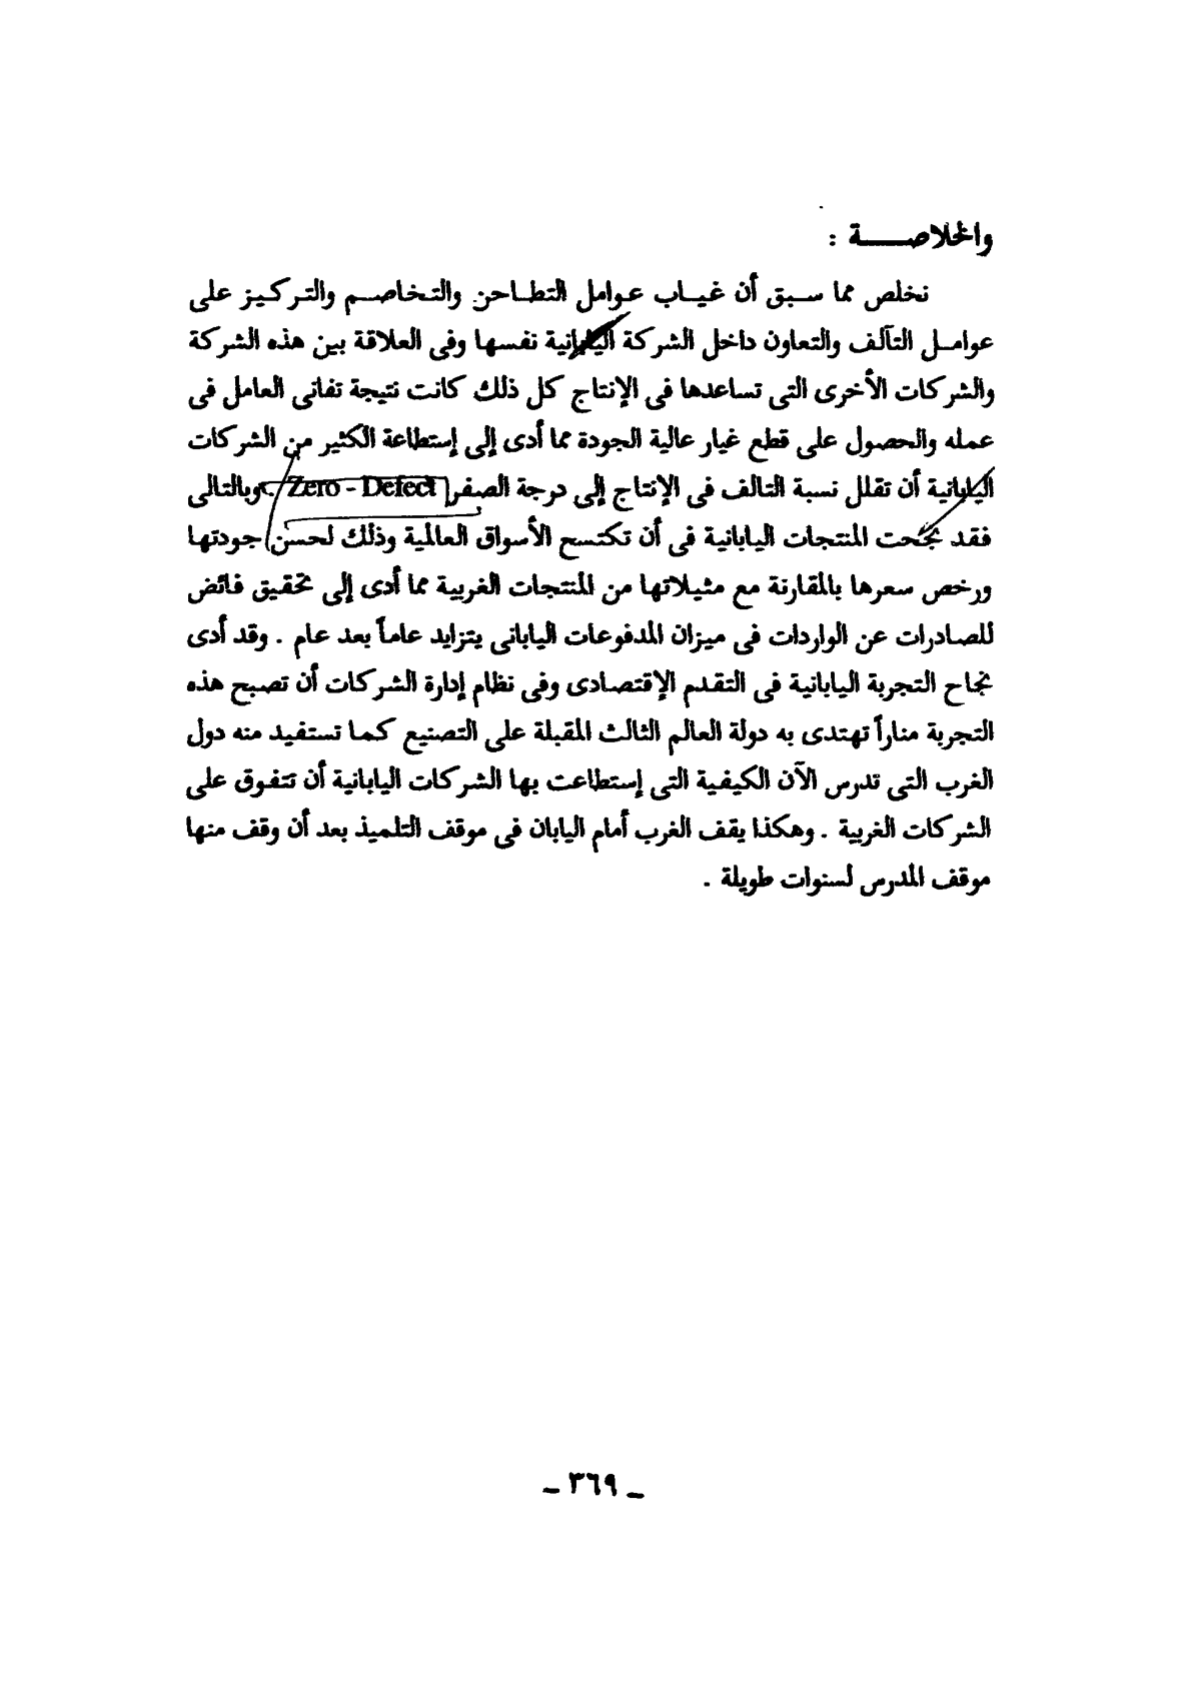 والخلاصـــــة :
نخلص مما سـبق أن غيـاب عوامل التطـاحن والتخاصـم والتركيـز على
عوامـل التآلف والتعاون داخل الشركة اليابانية نفسها وفى العلاقة بين هذه الشركة
والشركات الأخرى التى تساعدها فى الإنتاج كل ذلك كانت نتيجة تفانى العامل فى
عمله والحصول على قطع غيار عالية الجودة مما أدى إلى إستطاعة الكثير من الشركات
اليابانية أن تقلل نسبة التالف فى الإنتاج إلى درجة الصفر Zero - Defect وبالتالى
فقد نجحت المنتجات اليابانية فى أن تكتسح الأسواق العالمية وذلك لحسن جودتها
ورخص سعرها بالمقارنة مع مثيلاتها من المنتجات الغربية مما أدى إلى تحقيق فائض
للصادرات عن الواردات فى ميزان المدفوعات اليابانى يتزايد عاماً بعد عام . وقد أدى
نجاح التجربة اليابانية فى التقدم الإقتصادى وفى نظام إدارة الشركات أن تصبح هذه
التجربة مناراً تهتدى به دولة العالم الثالث المقبلة على التصنيع كما تستفيد منه دول
الغرب التى تدرس الآن الكيفية التى إستطاعت بها الشركات اليابانية أن تتفوق على
الشركات الغربية . وهكذا يقف الغرب أمام اليابان فى موقف التلميذ بعد أن وقف منها
موقف المدرس لسنوات طويلة .
ـ ٣٦٩ ـ